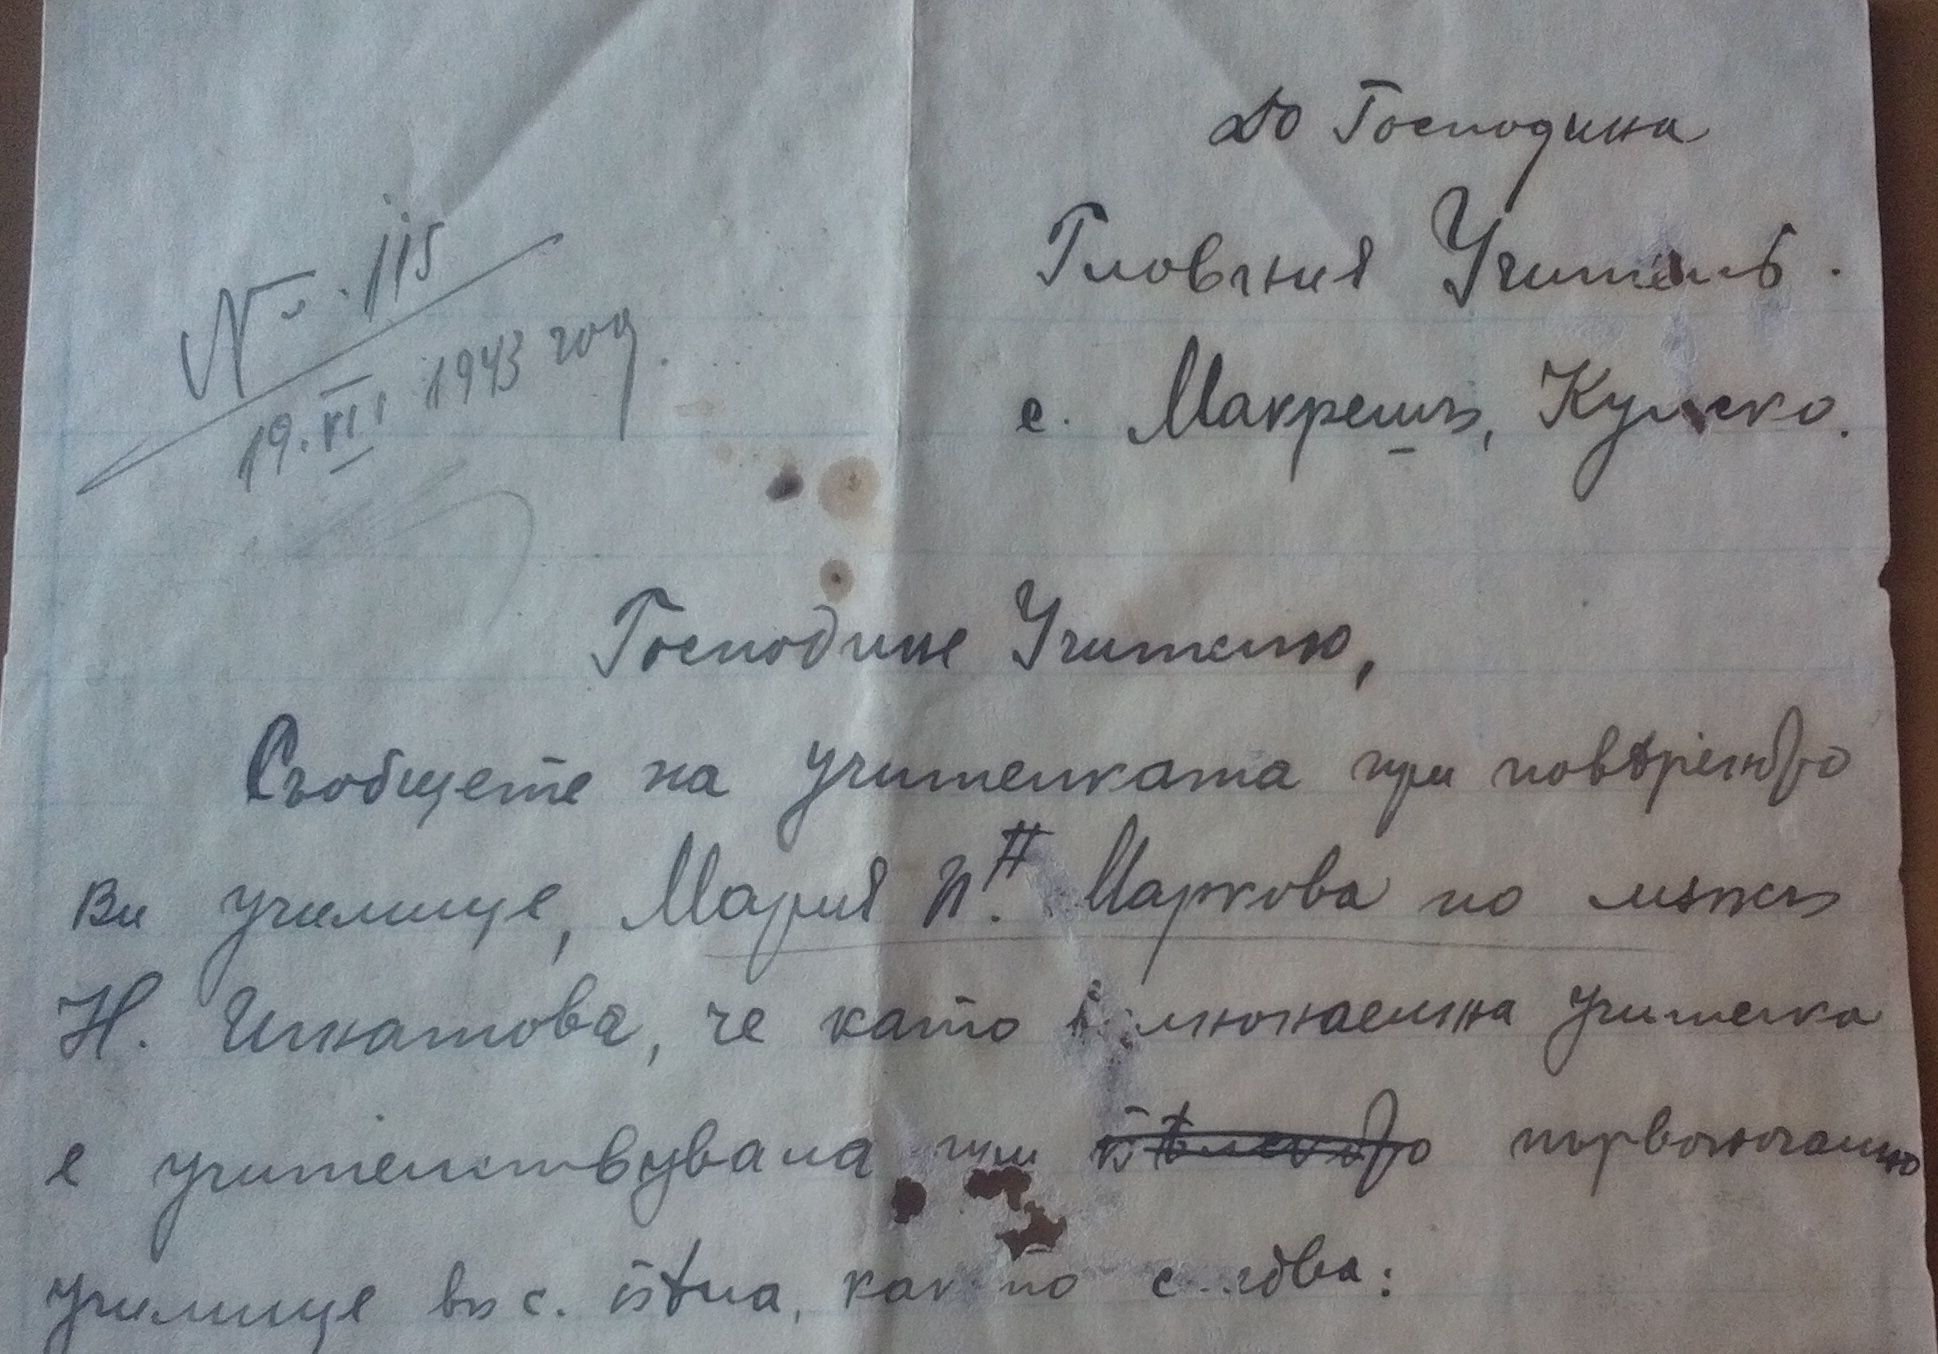 До Господина
Главния Учитель.
№ 115
19. VII 1943 год.
с. Макрешъ, Кулско.
Господине Учителю,
Съобщете на учителката при повѣреното
Ви училище, Мария П. Маркова по мѫжъ
Н. Игнатова, че като волнонаемна учителка
е учителствувала при първоначално
училище въ с. Бѣла, както следва: